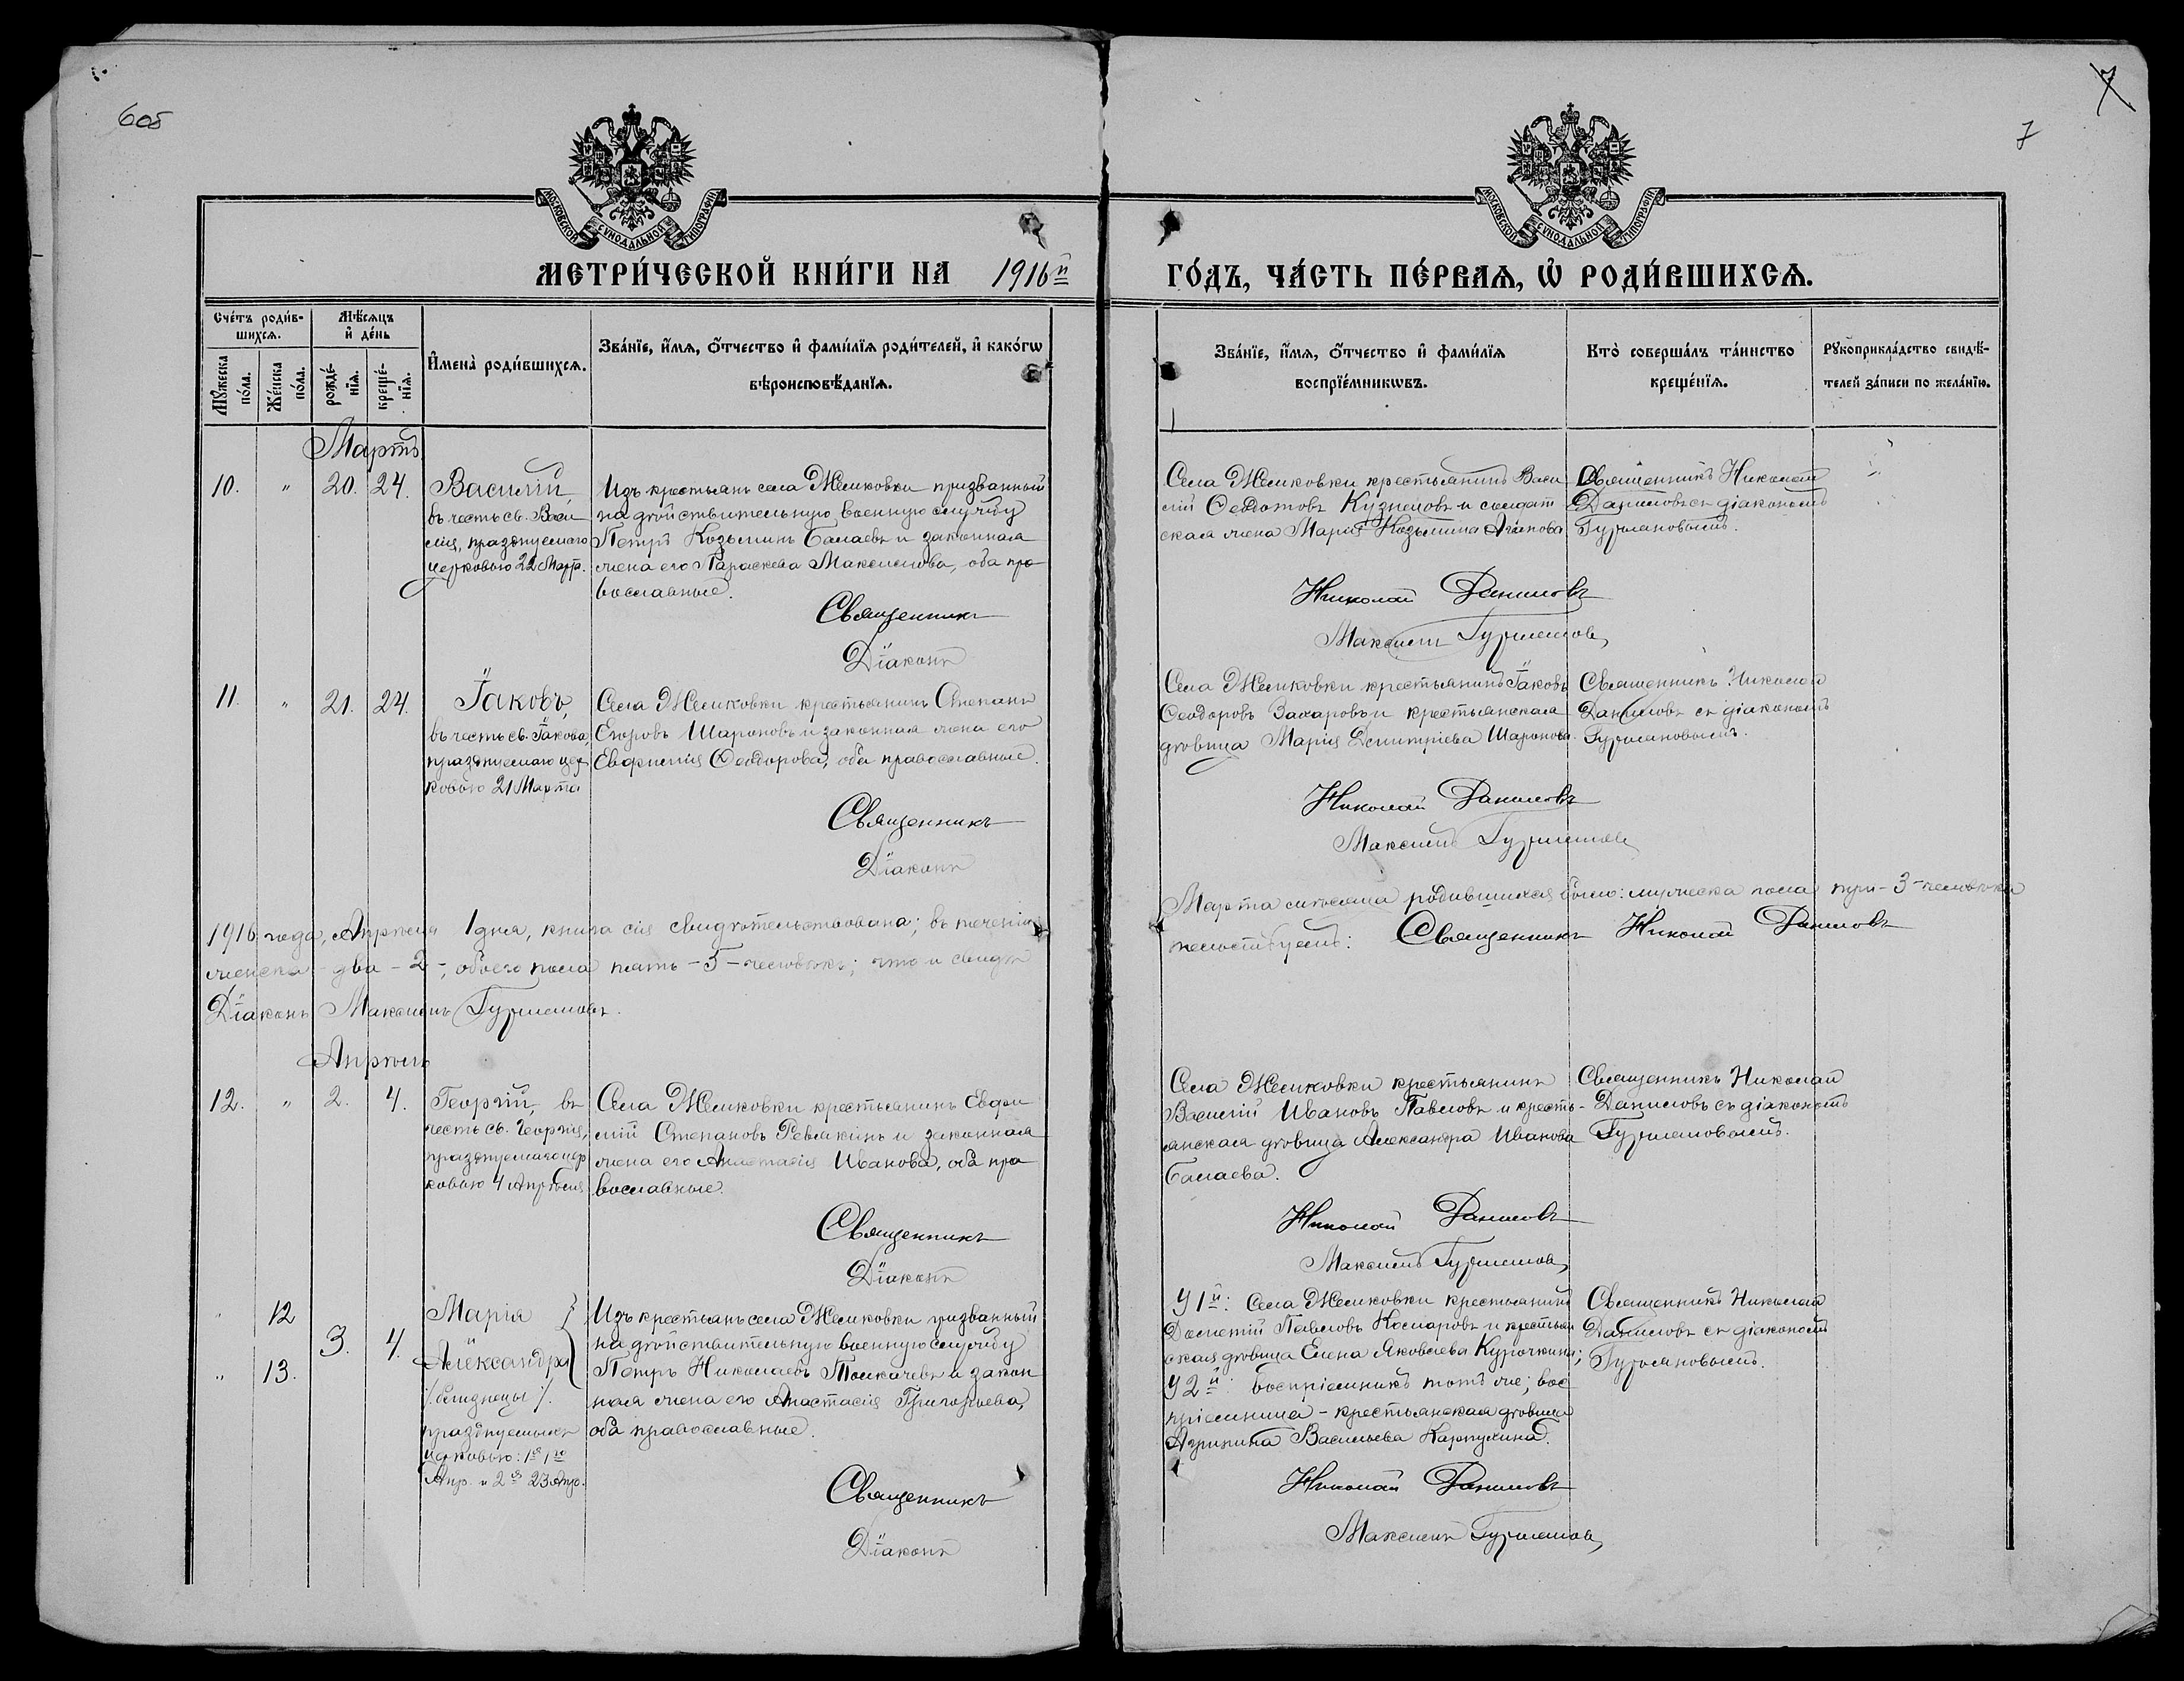 605
7
7
МОСКОВСКОЙ СѴНОДАЛЬНОЙ ТИПОГРАФІИ
МОСКОВСКОЙ СѴНОДАЛЬНОЙ ТИПОГРАФІИ
МЕТРИ́ЧЕСКОЙ КНИ́ГИ НА 1916й
ГО́ДЪ, ЧА́СТЬ ПЕ́РВАѦ, Ѡ҆ РОДИ́ВШИХСѦ.
Сче́тъ роди́в-
шихсѧ.
Мꙋ́жеска
по́ла.
Же́нска
по́ла.
Мѣ́сѧцъ
и҆ де́нь
рожде́-
нїѧ.
креще́-
нїѧ.
И҆мена̀ роди́вшихсѧ.
Зва́нїе, и҆́мѧ, ѻ҆́тчество и҆ фами́лїѧ роди́телей, и҆ како́гѡ
вѣроисповѣ́данїѧ.
Зва́нїе, и҆́мѧ, ѻ҆́тчество и҆ фами́лїѧ
воспрїе́мникѡвъ.
Кто̀ соверша́лъ та́инство
креще́нїѧ.
Рꙋкоприкла́дство свидѣ́-
телей за́писи по жела́нїю.
Мартъ
10. " 20. 24.
Василій,
въ честь св. Васи
лія, празднуемаго
церковью 22 Март.
Изъ крестьянъ села Жемковки призванный
на дѣйствительную военную службу
Петръ Козьминъ Балаевъ и законная
жена его Параскева Максимова, оба пра
вославные.
Священникъ
Діаконъ
Села Жемковки крестьянинъ Васи
лій Ѳедотовъ Кузнецовъ и солдат
ская жена Марія Козьмина Агапова
Священникъ Николай
Даниловъ съ діакономъ
Гурмановымъ.
Николай Даниловъ
Максимъ Гурмановъ
11. " 21. 24.
Іаковъ,
въ честь св. Іакова,
празднуемаго цер
ковью 21 Марта
Села Жемковки крестьянинъ Степанъ
Егоровъ Шароновъ и законная жена его
Евфимія Ѳеодорова, оба православные.
Священникъ
Діаконъ
Села Жемковки крестьянинъ Іаковъ
Ѳеодоровъ Захаровъ и крестьянская
дѣвица Марія Димитріева Шаронова.
Священникъ Николай
Даниловъ съ діакономъ
Гурмановымъ.
Николай Даниловъ
Максимъ Гурмановъ
1916 года, Апрѣля 1 дня, книга сія свидѣтельствована; въ теченіи
Марта мѣсяца родившихся было: мужеска пола три-3-человѣка
женска - два - 2 -, обоего пола пять - 5 - человѣкъ; что и свидѣ
тельствуемъ: Священникъ Николай Даниловъ
Діаконъ Максимъ Гурмановъ.
Апрѣль
12. " 2. 4.
Георгій, въ
честь св. Георгія,
празднуемаго цер
ковью 4 Апрѣля
Села Жемковки крестьянинъ Евфи
мій Степановъ Ревякинъ и законная
жена его Анастасія Иванова, оба пра
вославные.
Священникъ
Діаконъ
Села Жемковки крестьянинъ
Василій Ивановъ Павловъ и кресть-
янская дѣвица Александра Иванова
Балаева.
Священникъ Николай
Даниловъ съ діакономъ
Гурмановымъ.
Николай Даниловъ
Максимъ Гурмановъ
" 12
" 13.
3. 4.
Марія
Александра
/: близнецы :/.
празднуемыхъ
церковью: 1я 1го
Апр. и 2я 23 Апр.
Изъ крестьянъ села Жемковки призванный
на дѣйствительную военную службу
Петръ Николаевъ Толкачевъ и закон
ная жена его Анастасія Григорьева,
оба православные.
Священникъ
Діаконъ
У 1й: Села Жемковки крестьянинъ
Павловъ и крестьян
ская дѣвица Елена Яковлева Курочкина;
У 2й: воспріемникъ тотъ же; вос
пріемница - крестьянская дѣвица
Агрипина Васильева Карпухина.
Священникъ Николай
Даниловъ съ діакономъ
Гурмановымъ.
Николай Даниловъ
Максимъ Гурмановъ